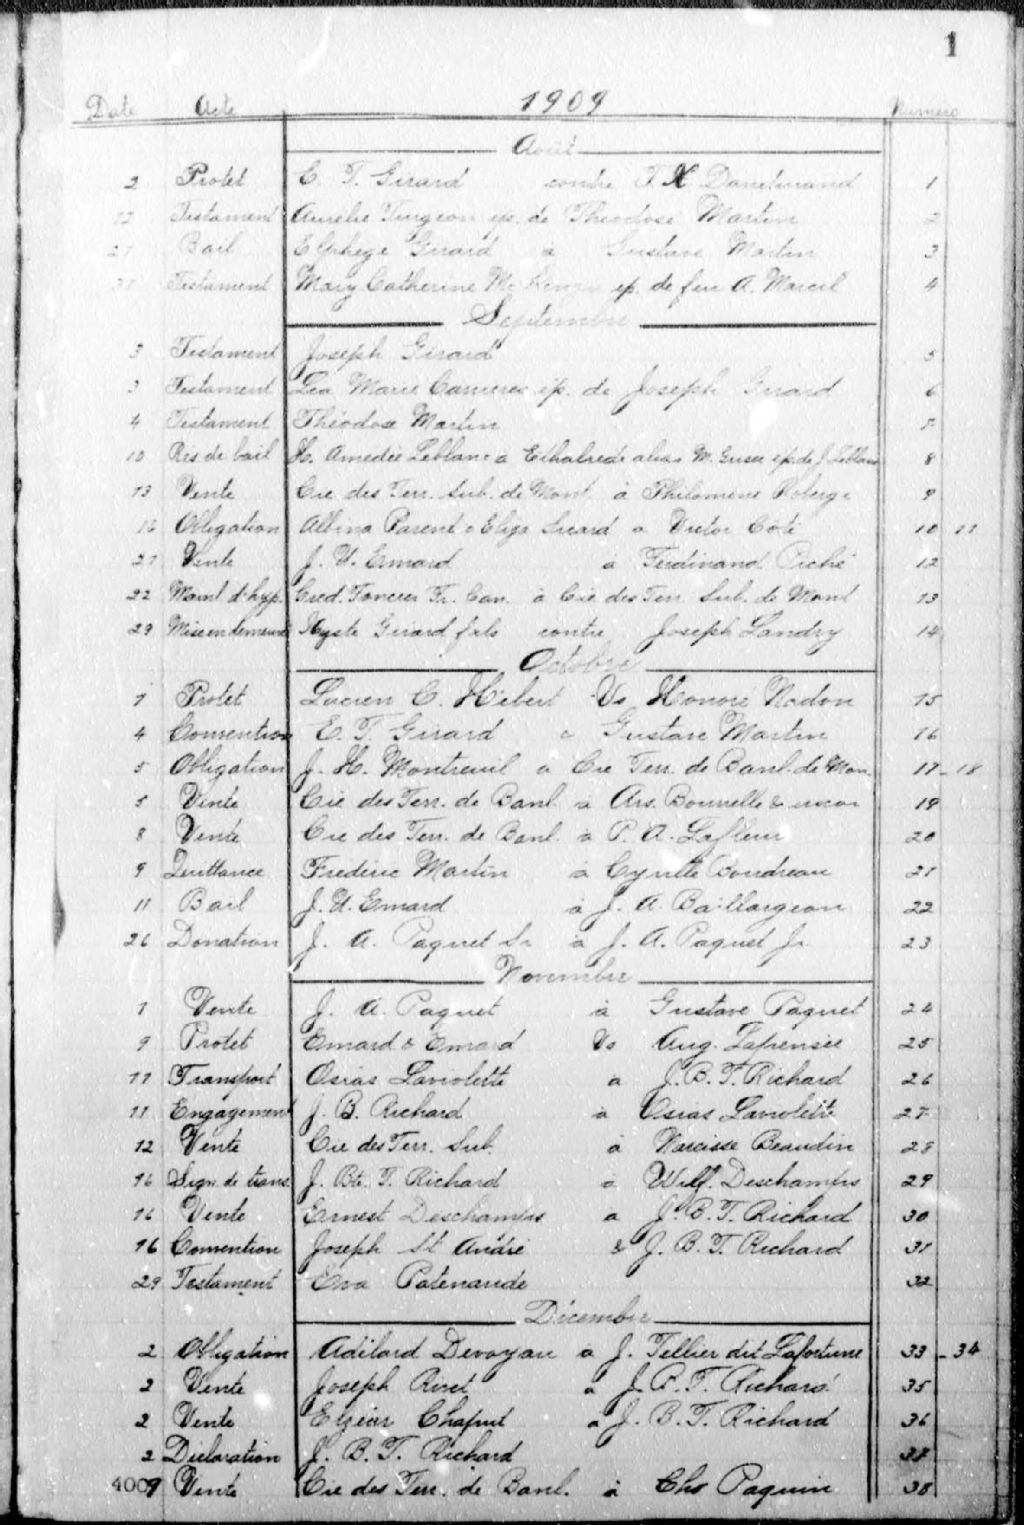 1
Date Acte 1909 Numero
Août
2 Protet E. T. Girard contre F. X 1
12 Testament Aurelie Turgeon ép. de Theodose Martin 2
27 Bail Elphege Girard à Gustave Martin 3
Testament Mary Catherine ép. de feu A. Marcil 4
Septembre
3 Testament Joseph Girard 5
3 Testament Léa Marie Carrieres ép. de Joseph Girard 6
4 Testament Théodose Martin 7
10 Res de bail H. Amedée Leblanc à alias M. ép. de J. Leblanc 8
13 Vente Cie des Terr. Sub. de Mont. à Philomene Roberge 9
16 Obligation Albina Parent & Eliza Sicard a Victor Coté 10 11
21 Vente J. U. Emard à Ferdinand Piché 12
22 Mainl d'hyp. Cred. Foncier Fr. Can. à Cie des Terr. Sub. de Mont 13
29 Mise en demeure Xyste Girard fils contre Joseph Landry 14
Octobre
1 Protet Lucien C. Hebert Vs Honoré Nadon 15
4 Convention E. T. Girard & Gustave Martin 16
5 Obligation J. H. Montreuil a Cie Terr. de Banl. de Mon. 17-18
5 Vente Cie des Terr. de Banl. à Ars. & uxor 19
8 Vente Cie des Terr. de Banl. à P. A. Lafleur 20
9 Quittance Frederic Martin à Boudreau 21
11 Bail J. U. Emard à J. A. Baillargeon 22
26 Donation J. A. Paquet Sr à J. A. Paquet Jr. 23
Novembre
1 Vente J. A. Paquet à Gustave Paquet 24
9 Protet Emard & Emard Vs Aug. Lapensée 25
11 Transport Osias Laviolette a J. B. T. Richard 26
11 Engagement J. B. Richard à Osias Laviolette 27
12 Vente Cie des Terr. Sub. à Narcisse Beaudin 28
16 Sign. de trans. J. Bte. T. Richard à Wilf. Deschamps 29
16 Vente Ernest Deschamps a J. B. T. Richard 30
16 Convention Joseph St André & J. B. T. Richard 31
29 Testament Eva Patenaude 32
Décembre
2 Obligation Adélard Devoyau a J. Tellier dit Lafortune 33-34
2 Vente Joseph Rivet a J. B. T. Richard 35
2 Vente Elzéar Chaput a J. B. T. Richard 36
2 Déclaration J. B. T. Richard 37
4009 Vente Cie des Terr. de Banl. à Chs Paquin 38